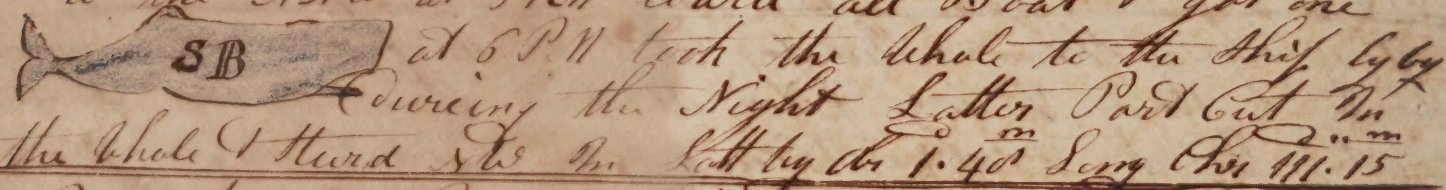 at 5 PM Lowered all Boat & got one
SB at 6 PM took the Whale to the Ship ly by
dureing the Night Latter Part Cut In
the Whale & Steird NW In Latt by obs 1°.40m Long Chr 111°.15m